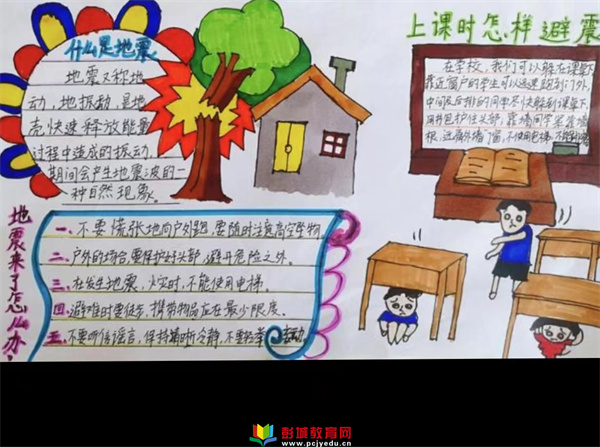 什么是地震
地震又称地
动,地振动,是地
壳快速释放能量
过程中造成的振动,
期间会产生地震波的一
种自然现象。
上课时怎样避震
在学校,我们可以躲在课桌下
靠近窗户的学生可以迅速跑到门外,
中间及后排的同学尽快躲到课桌下,
用书包护住头部,靠墙同学紧靠墙
根,远离外墙门窗,不使用电梯,
地震来了怎么办?
一、不要慌张地向户外跑,要随时注意高空坠物
二、户外的场合,要保护好头部,避开危险之外。
三、在发生地震、火灾时,不能使用电梯。
四、避难时要徒步,携带物品应在最少限度。
五、不要听信谣言,保持清晰冷静,不要轻举
彭城教育网
www.pcjyedu.cn